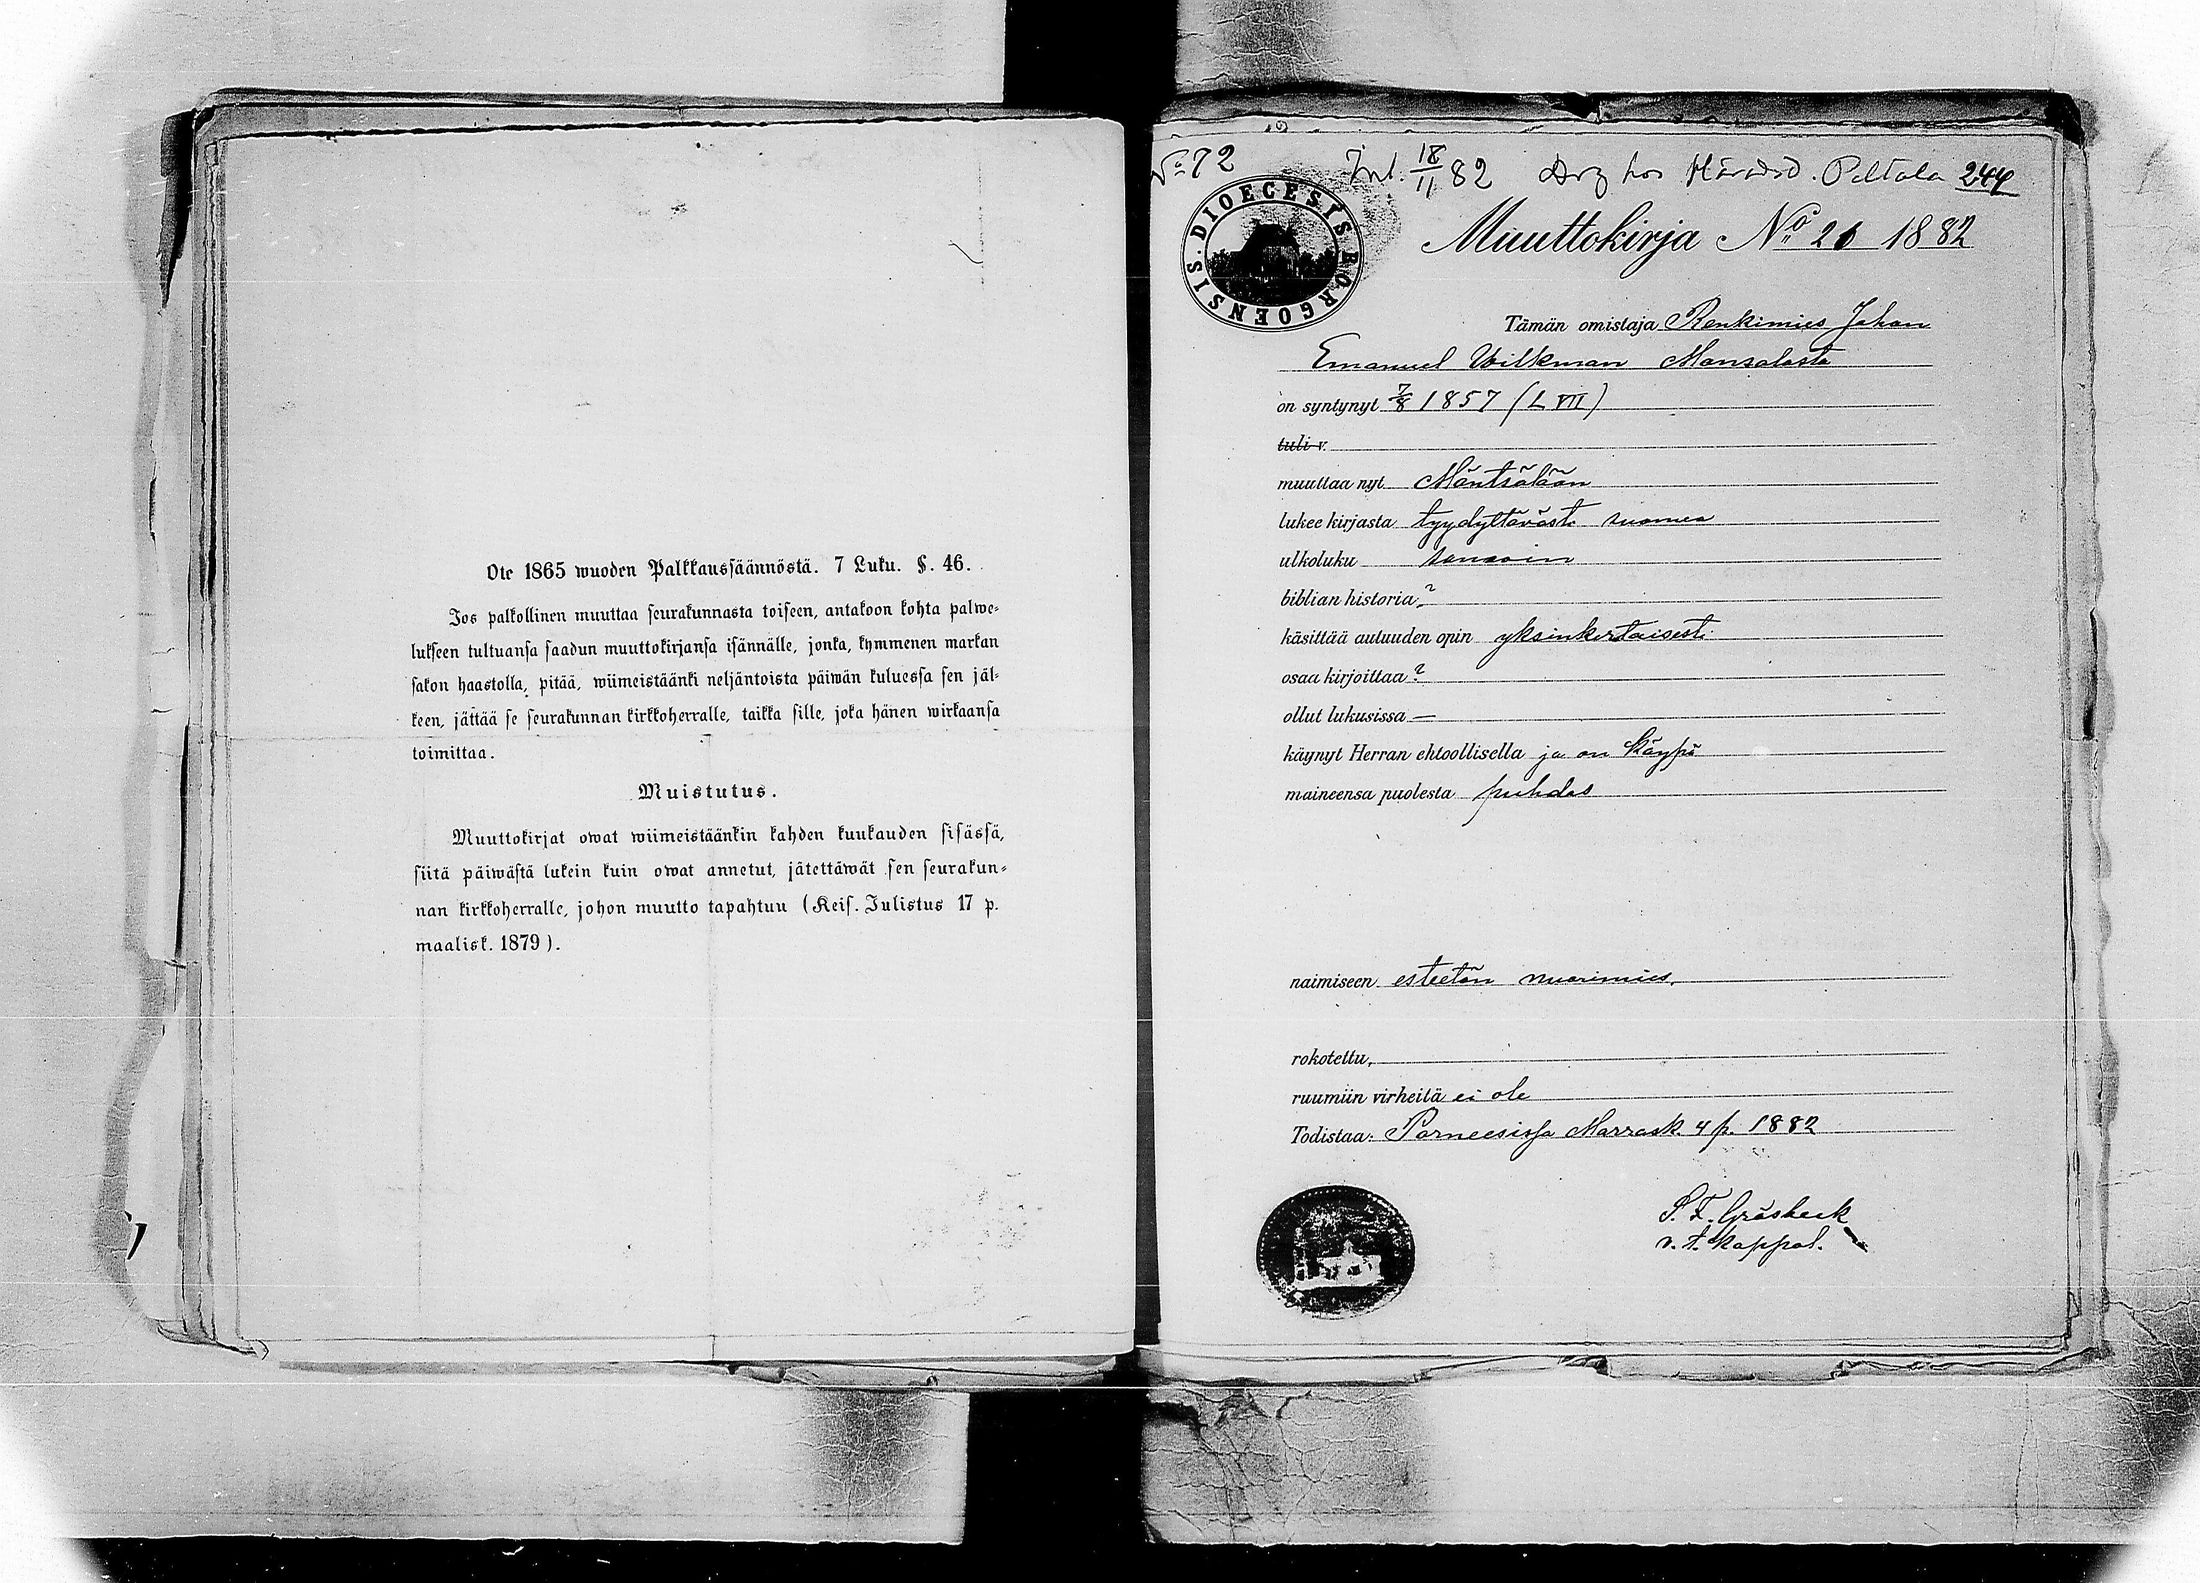 Ote 1865 wuoden Palkkaussäännöstä. 7 Luku. §. 46.
Jos palkollinen muuttaa seurakunnasta toiseen, antakoon kohta palwe-
lukseen tultuansa saadun muuttokirjansa isännälle, jonka, kymmenen markan
sakon haastolla, pitää, wiimeistäänki neljäntoista päiwän kuluessa sen jäl-
keen, jättää se seurakunnan kirkkoherralle, taikka sille, joka hänen wirkaansa
toimittaa.
Muistutus.
Muuttokirjat owat wiimeistäänkin kahden kuukauden sisässä,
siitä päiwästä lukein kuin owat annetut, jätettäwät sen seurakun-
nan kirkkoherralle, johon muutto tapahtuu (Keis. Julistus 17 p.
maalisk. 1879).
No 72 Int. 18/11 82 Drg hos Häradsd. Peltala 244
DIOECESIS BORGOENSIS.
Muuttokirja No 26 1882
Tämän omistaja Renkimies Johan
Emanuel Wilkman Monsalasta
on syntynyt 7/8 1857 (L VII)
tuli v.
muuttaa nyt Mäntsälään
lukee kirjasta tyydyttäwästi suomea
ulkoluku samoin
biblian historia ?
käsittää autuuden opin yksinkertaisesti
osaa kirjoittaa ?
ollut lukusissa —
käynyt Herran ehtoollisella ja on käypä
maineensa puolesta puhdas
naimiseen esteetön nuorimies.
rokotettu,
ruumiin virheitä ei ole
Todistaa: Porneesissa Marrask. 4 p. 1882
S. F. Gräsbeck
v. t. kappal.